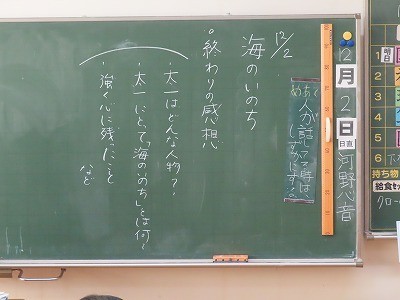 12月2日
日直
河野心音
めあて
人が話してる時は、
しずかにする。
12/2
海のいのち
○終わりの感想
・太一はどんな人物?
・太一にとって「海のいのち」とは何?
・強く心に残ったこと
など
明日
1
2
3
4
5
6
持ち物
給食セ